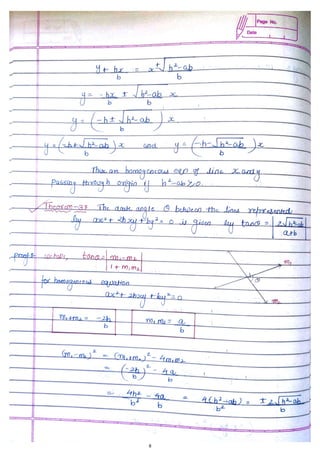 Page No.
Date
y + hx/b = x ± √h²-ab / b
y = -hx/b ± √h²-ab / b x
y = (-h ± √h²-ab / b) x
y = (-h+√h²-ab / b) x and y = (-h-√h²-ab / b) x
Thus an homogeneous eqn of line x and y
passing through origin if h²-ab≥0.
The acute angle θ between the lines represented
by ax²+2hxy+by²=0 is given by tanθ = |2√h²-ab / a+b|
proof:- tanθ = |m₁-m₂ / 1+m₁m₂|
m₁
θ
for homogeneous equation
m₂
ax²+2hxy+by²=0
m₁+m₂ = -2h/b m₁m₂ = a/b
(m₁-m₂)² = (m₁+m₂)² - 4m₁m₂
= (-2h/b)² - 4a/b
= 4h²/b² - 4a/b = 4(h²-ab)/b² = ± 2√h²-ab / b